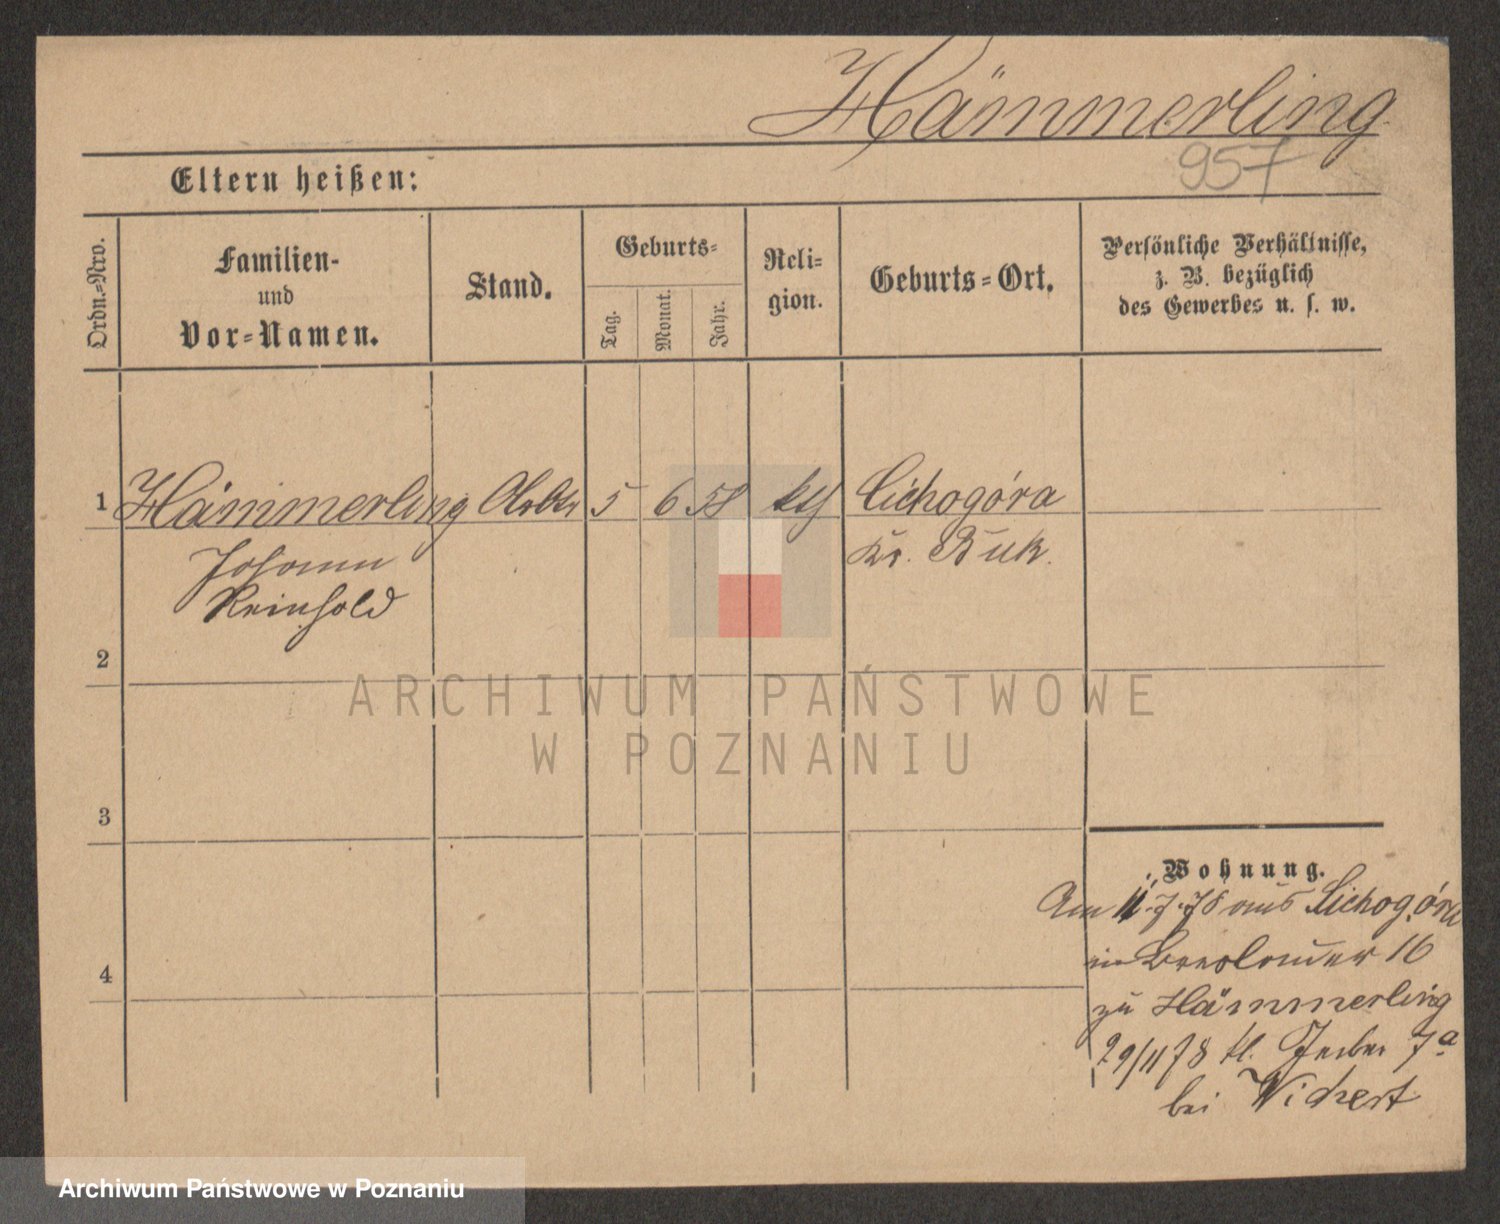 Hämmerling
957
Eltern heißen:
Ordn.=Nro.
Familien-
und
Vor=Namen.
Stand.
Geburts=
Tag.
Monat.
Jahr.
Reli=
gion.
Geburts=Ort.
Persönliche Verhältnisse,
z. B. bezüglich
des Gewerbes u. s. w.
1 Hämmerling 5 6 58 kth Cichogóra
Johann Kr. Buk.
Reinhold
2
ARCHIWUM PAŃSTWOWE
W POZNANIU
3
Wohnung.
Am 11.7.78 aus Cichogóra
in Breslauer 16
4
zu Hämmerling
29/11 78 kl. 7a
bei Wichert
Archiwum Państwowe w Poznaniu